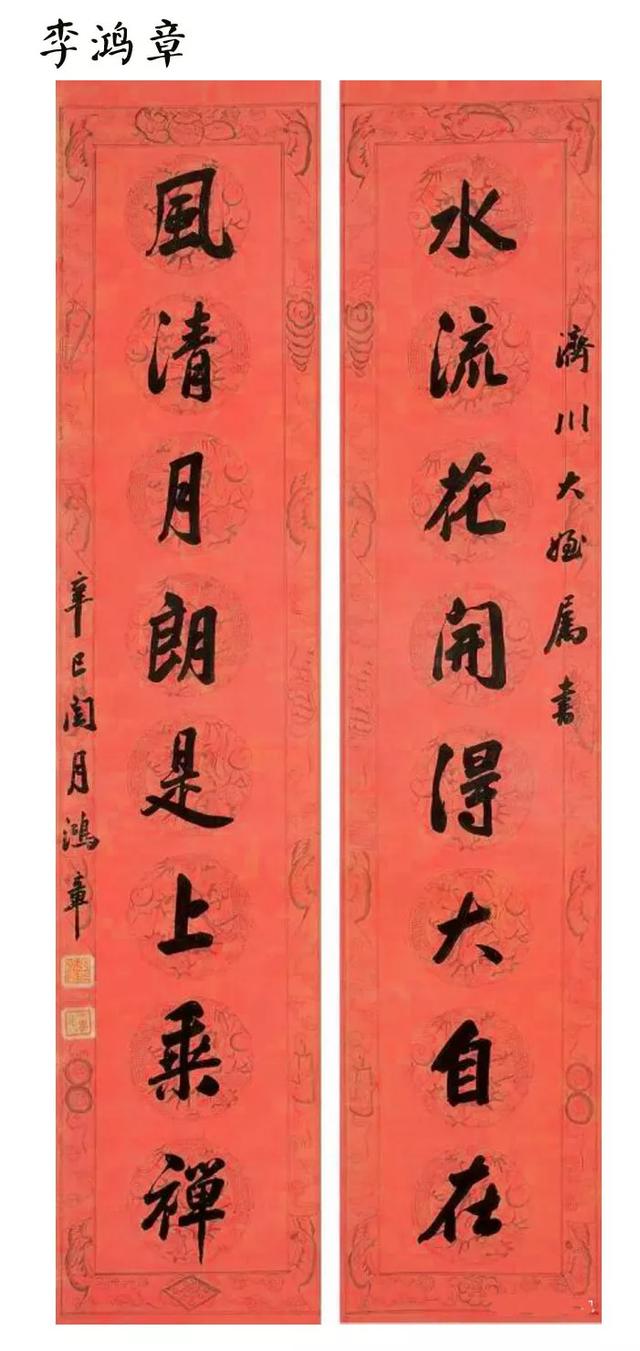 李鸿章
濟川大姪属書
水流花開得大自在
風清月朗是上乘禪
辛巳閏月鴻章